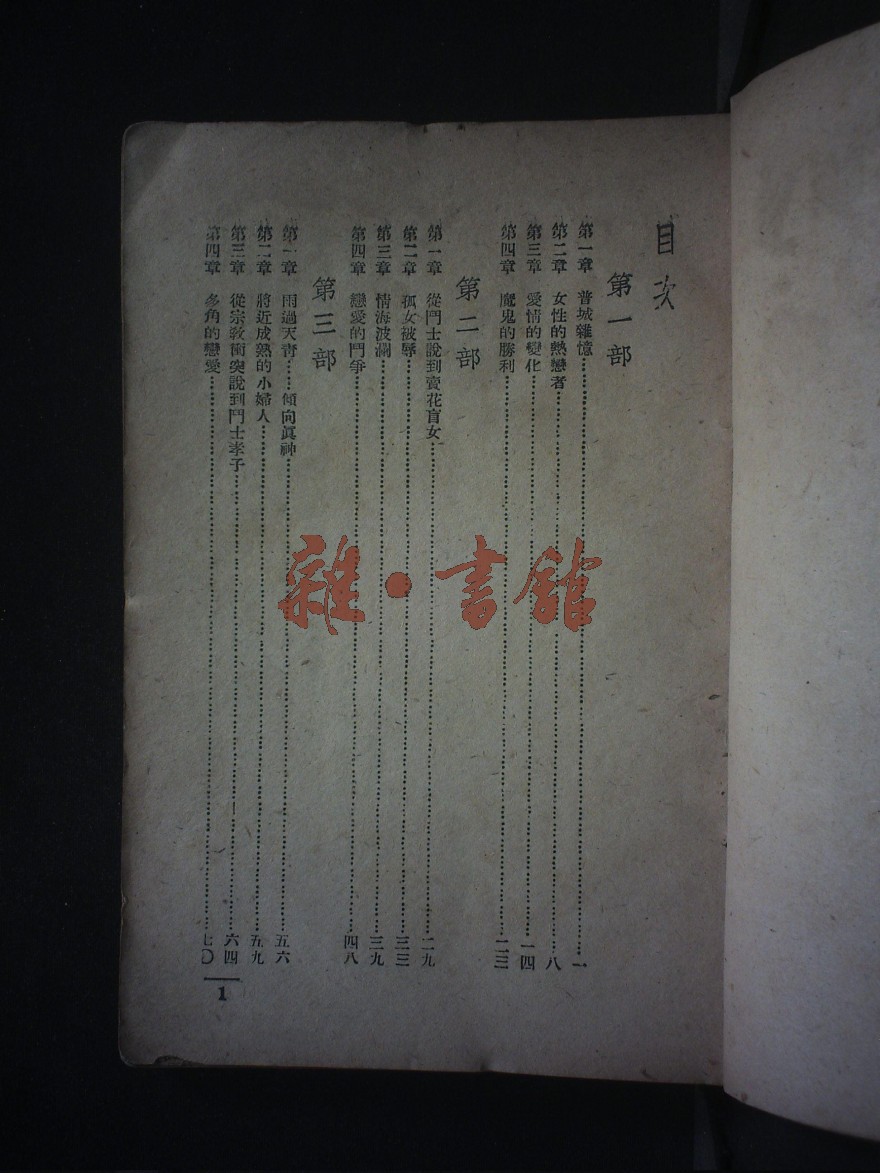 目次
第一部
第一章 普城雜憶……一
第二章 女性的熱戀者……八
第三章 愛情的變化……一四
第四章 魔鬼的勝利……二三
第二部
第一章 從鬥士說到賣花盲女……二九
第二章 孤女被辱……三三
第三章 情海波瀾……三九
第四章 戀愛的鬥爭……四八
第三部
第一章 雨過天青……傾向眞神……五六
第二章 將近成熟的小婦人……五九
第三章 從宗敎衝突說到鬥士孝子……六四
第四章 多角的戀愛……七〇
1
雜·書館